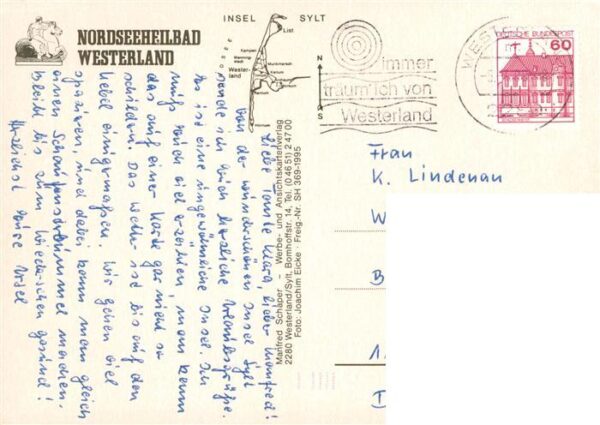 NORDSEEHEILBAD
WESTERLAND
INSEL SYLT
List
Kampen
Westerland
N
S
immer
träum' ich von
Westerland
DEUTSCHE BUNDESPOST
60
Liebe Tante Klara, lieber Manfred!
Von der wunderschönen Insel Sylt
sende ich Euch herzliche Urlaubsgrüße.
Es ist eine ungewöhnliche Insel. Ich
muß Euch viel erzählen, man kann
das auf einer Karte gar nicht so
schildern. Das Wetter ist bis auf den
Nebel einigermaßen. Wir gehen viel
spazieren, und dabei kann man gleich
einen Schaufensterbummel machen.
Bleibt bis zum Wiedersehen gesund!
Herzlichst Eure Ursel
Manfred Schäper – Werbe- und Ansichtskartenverlag
2280 Westerland/Sylt, Bomhoffstr. 14, Tel. (0 46 51) 2 47 00
Foto: Joachim Eicke · Freig.-Nr. SH 369-1995
Frau
K. Lindenau
W
B
1
D